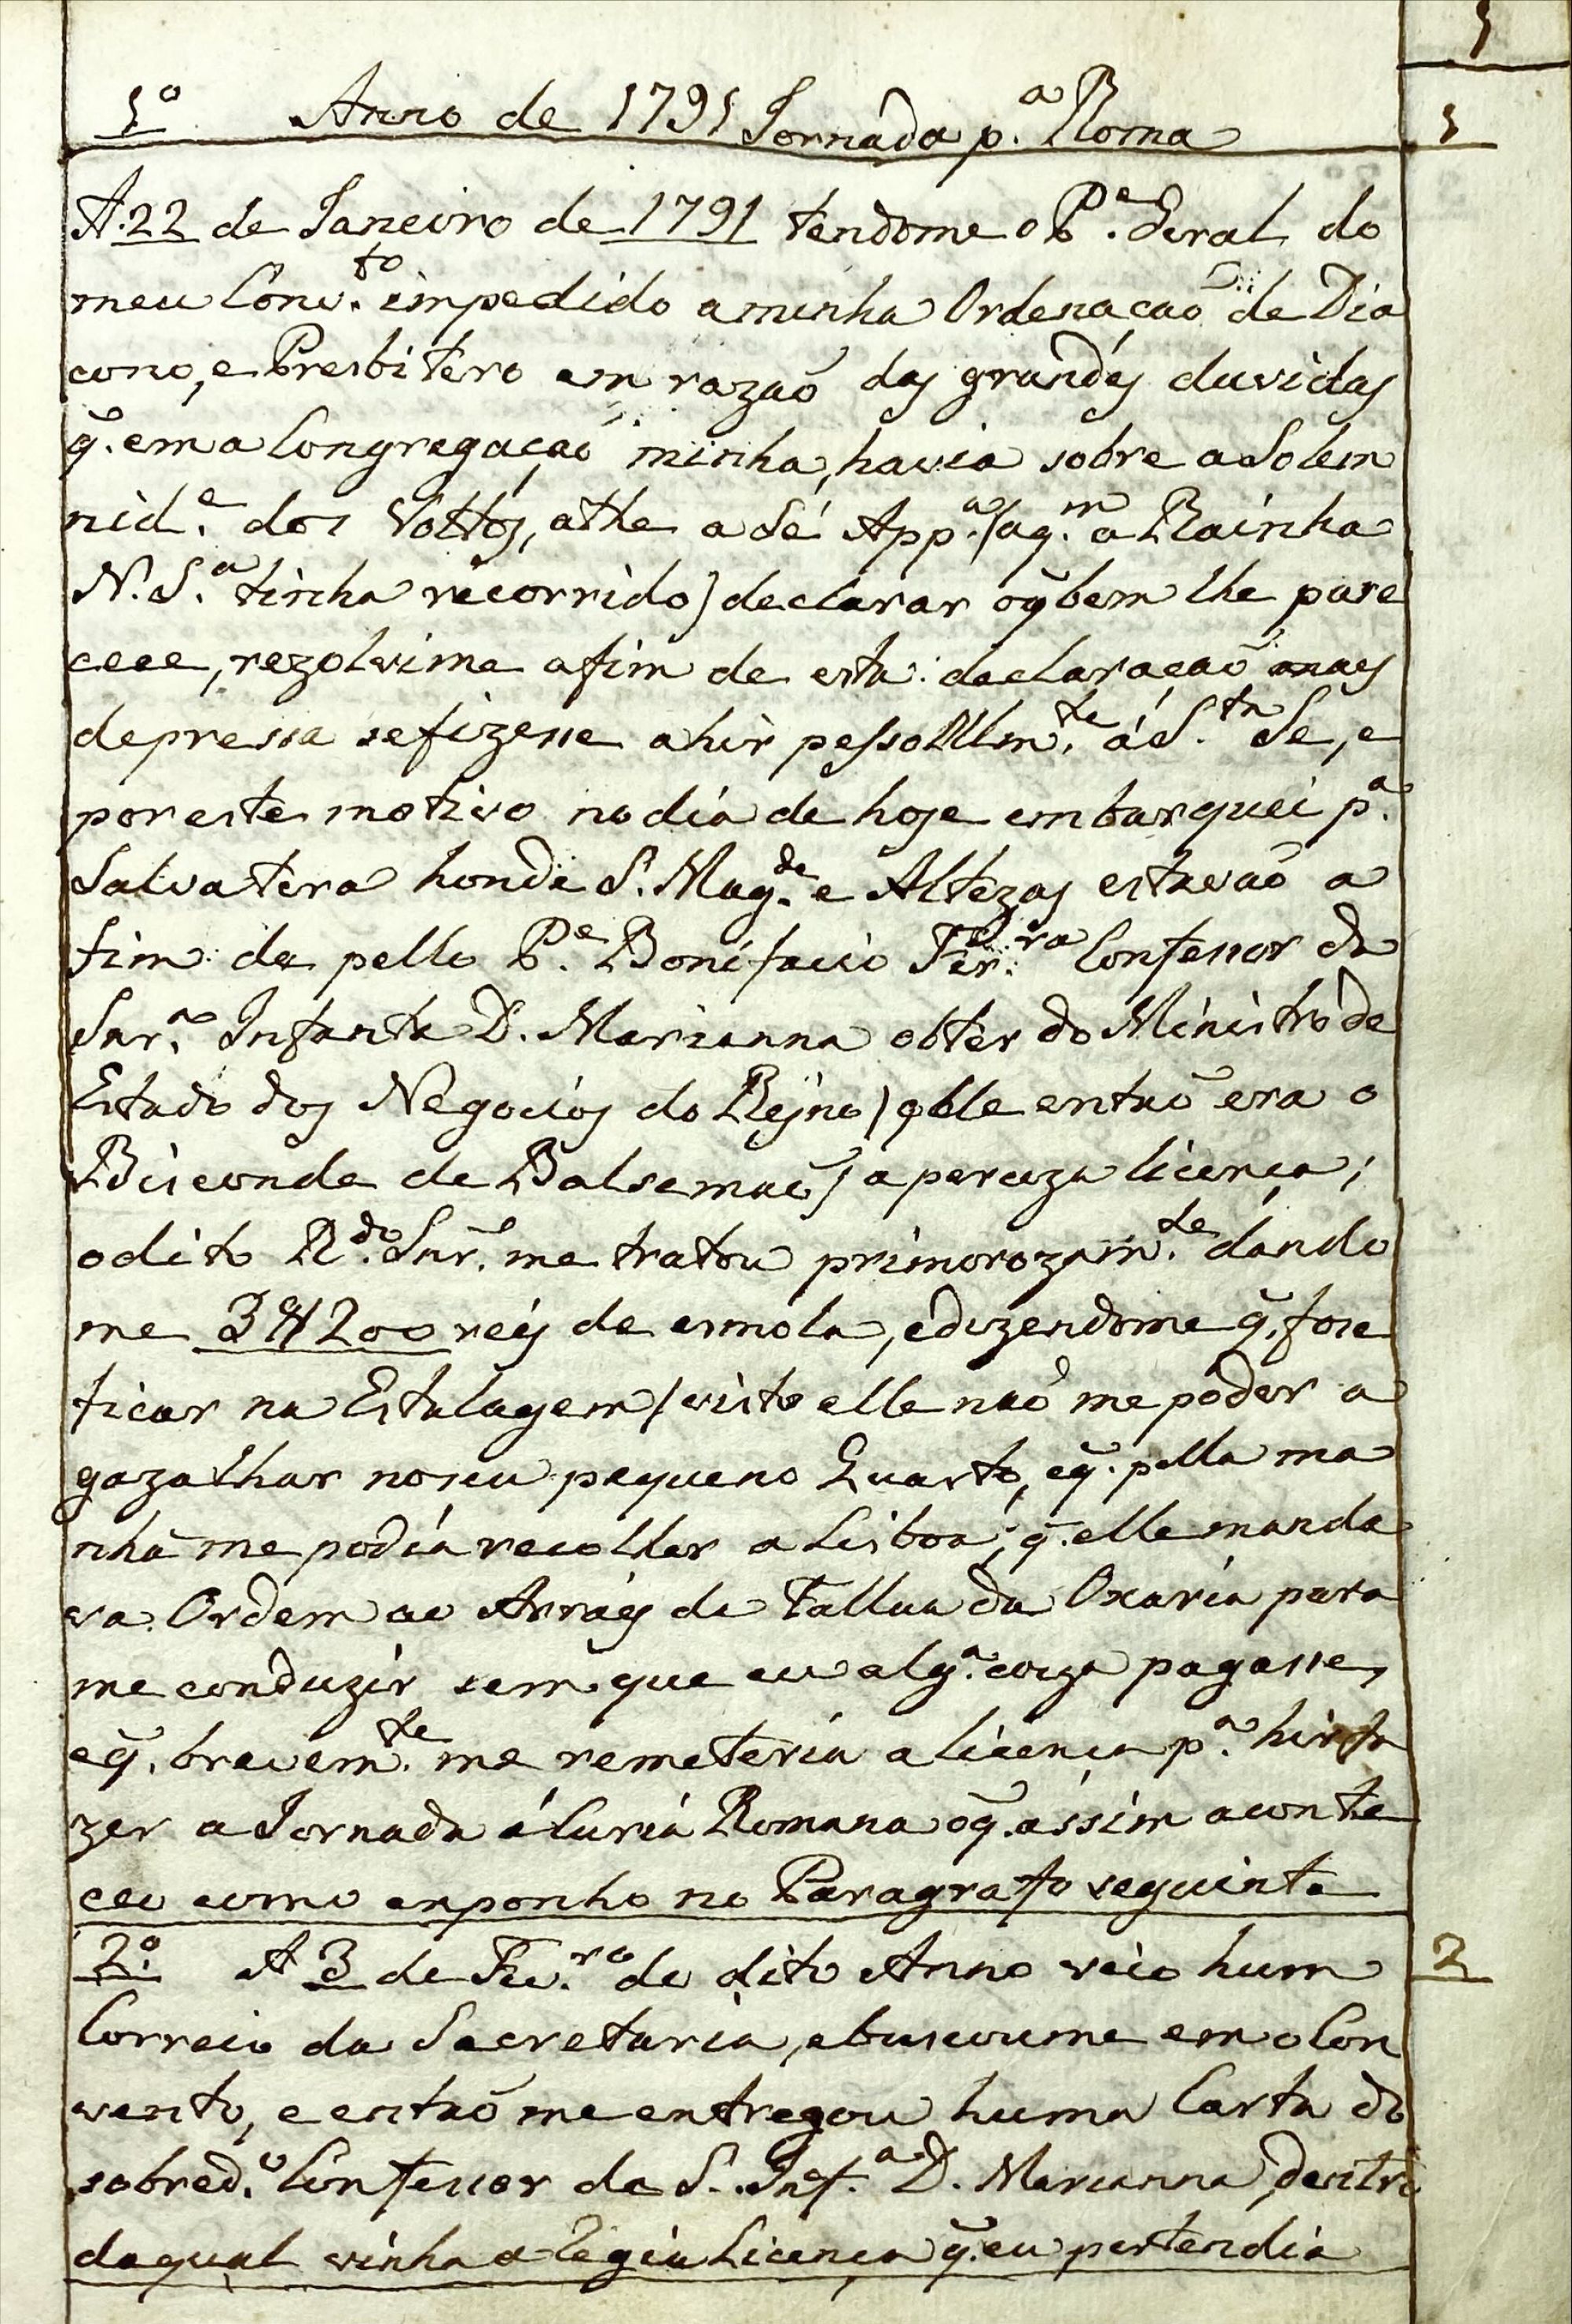 1
1º Anno de 1791 Jornada p.ª Roma 1
A.22 de Janeiro de 1791 tendome o P.e Geral do
meu Conv.to impedido a minha Ordenacaõ de Dia
cono, e Presbitero em razaõ das grandes duvidas
q̃. em a Congregaçaõ minha, havia sobre a Solem
nid.e dos Vottos, athe a Sé App.ª (a q.m a Rainha
N. S.ª tinha recorrido) declarar o q̃ bem lhe pare
cece, rezolvime a fim de esta declaraçaõ mais
depressa se fizesse a hir pessoallm.te á S.ta Se, e
por este motivo no dia de hoje embarquei p.ª
Salvatera honde S. Mag.de e Altezas estavaõ a
fim de pello P.e Bonifacio Ferr.ra Confessor da
Snr.ª Infanta D. Marianna obter do Ministro de
Estado dos Negocios do Rejno (q elle entaõ era o
Bisconde de Balsemaõ) a perciza licença;
o dito R.do Snr̃. me tratou primorozam.te dando
me 3#200 reis de esmola, e dizendome q̃. fose
ficar na Estalagem (visto elle naõ me poder a
gazalhar no seu pequeno Quarto, e q̃. pella ma
nhã me podia recolher a Lisboa, q̃. elle manda
va Ordem ao Arrás da Fallua da Oxaria para
me conduzir sem que eu alg.ª couza pagasse,
e q̃. brevem.te me remeteria a licença p.ª hir fa
zer a Jornada á Curia Romana o q̃. assim aconte
ceu como exponho no Paragrafo seguinte
2º. A 3 de Fev.ro de dito Anno veio hum 2
Correio da Secretaria, e buscoume em o Con
vento, e entaõ me entregou huma Carta do
sobred.o Confessor da S. Inf.ª D. Marianna, dentro
da qual vinha a Regia Licença q̃. eu pertendia